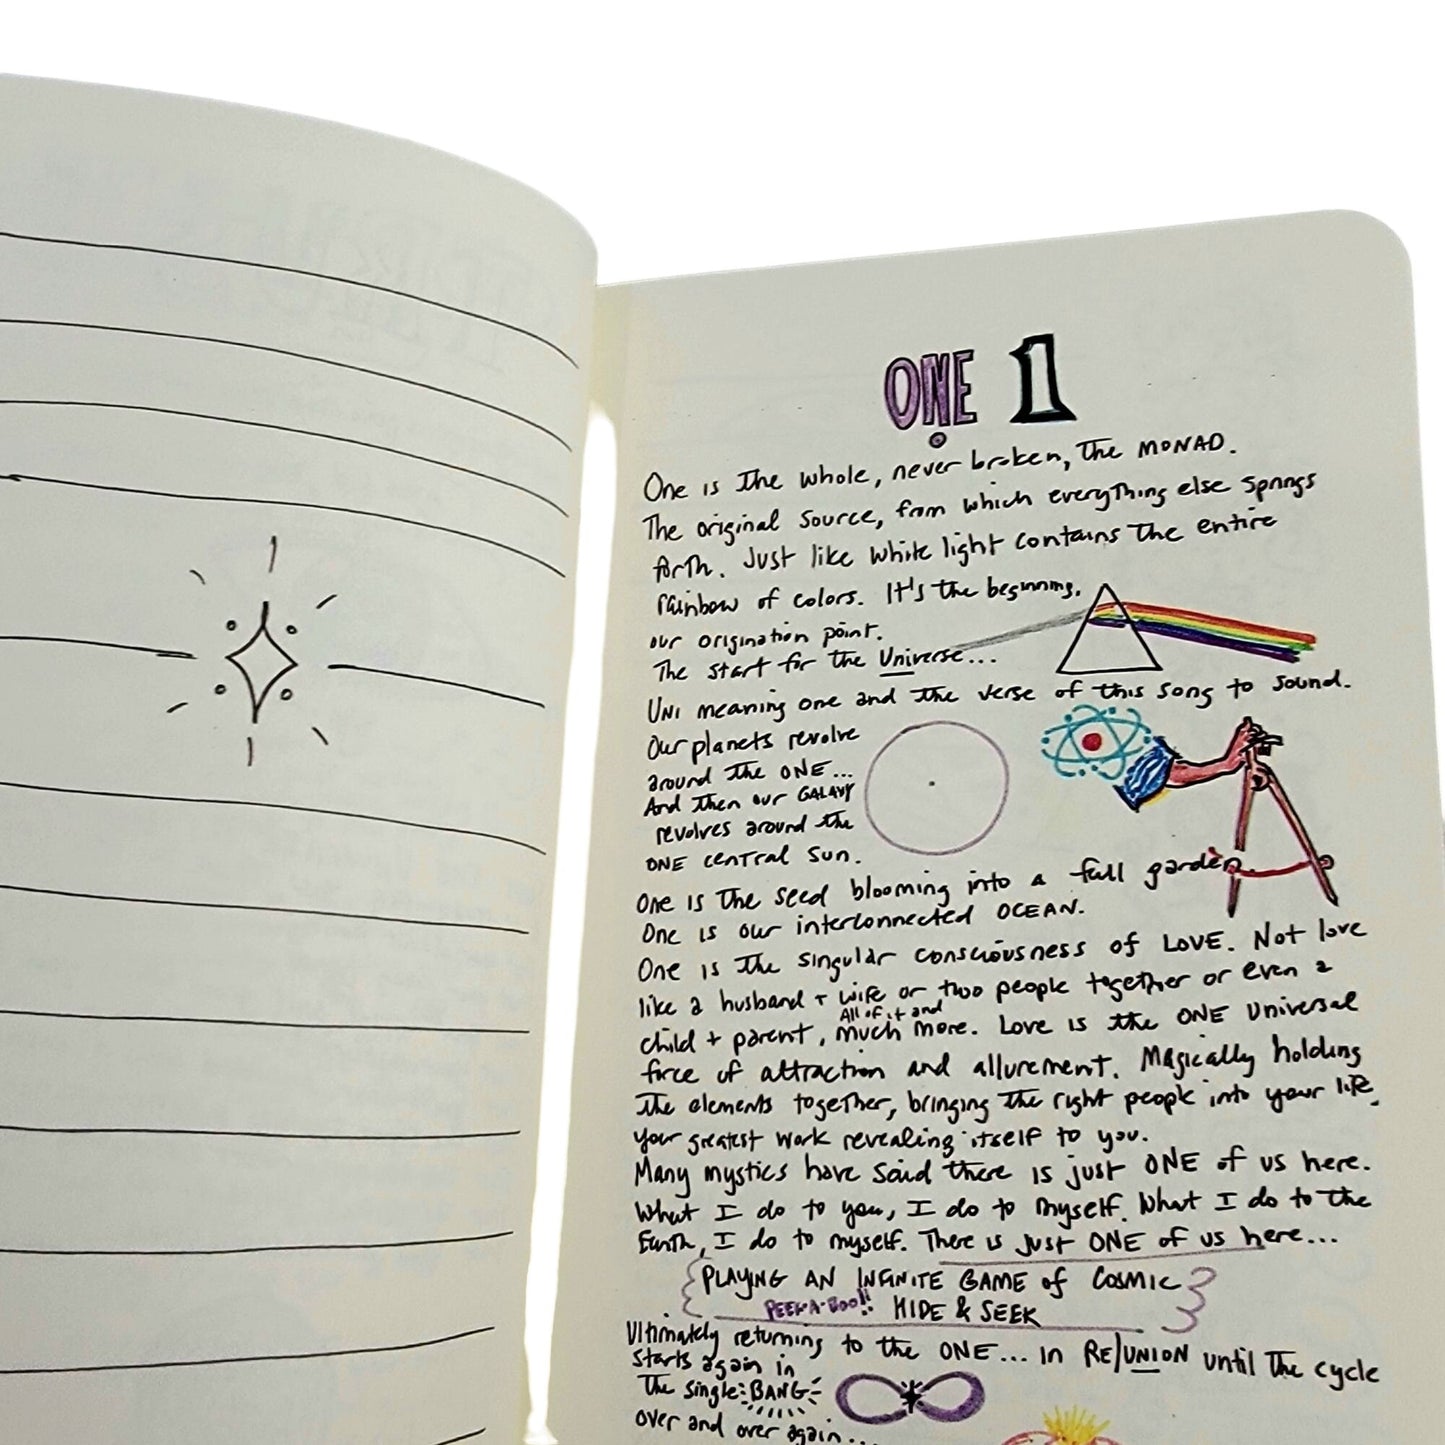 ONE 1
One is the whole, never broken, the MONAD.
The original source, from which everything else springs
forth. Just like white light contains the entire
rainbow of colors. It's the beginning,
our origination point.
The start for the Universe...
UNI meaning one and the verse of this song to sound.
Our planets revolve
around the ONE...
And then our GALAXY
revolves around the
ONE central Sun.
One is the seed blooming into a full garden.
One is our interconnected OCEAN.
One is the singular consciousness of LOVE. Not love
like a husband + wife or two people together or even a
All of it and
child + parent, much more. Love is the ONE Universal
force of attraction and allurement. Magically holding
the elements together, bringing the right people into your life,
your greatest work revealing itself to you.
Many mystics have said there is just ONE of us here.
What I do to you, I do to myself. What I do to the
Earth, I do to myself. There is just ONE of us here...
PLAYING AN INFINITE GAME of COSMIC
PEEK-A-BOO!! HIDE & SEEK
Ultimately returning to the ONE... in RE/UNION until the cycle
starts again in
the single BANG
over and over again...